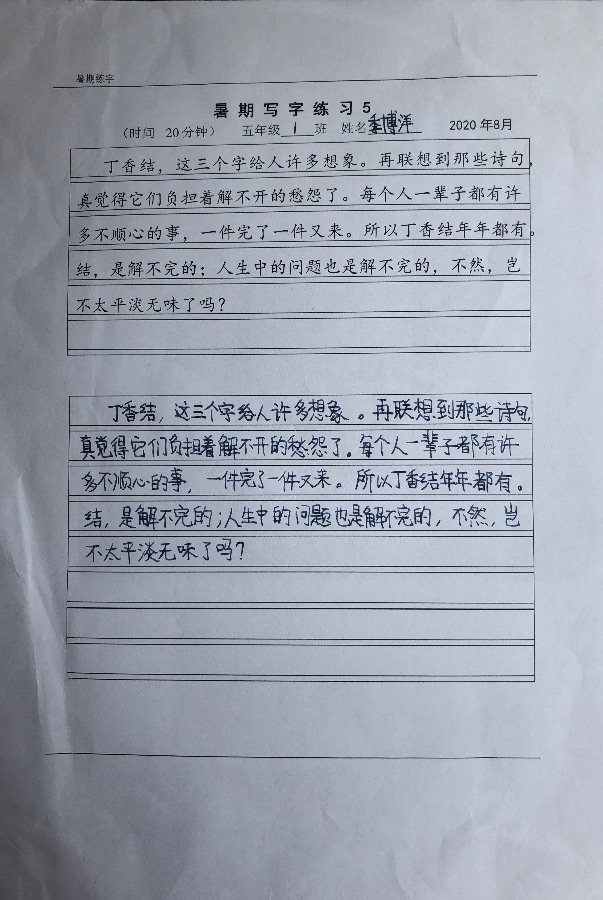 暑期练字
暑期写字练习5
（时间 20分钟） 五年级 1 班 姓名 季博洋 2020年8月
丁香结，这三个字给人许多想象。再联想到那些诗句，
真觉得它们负担着解不开的愁怨了。每个人一辈子都有许
多不顺心的事，一件完了一件又来。所以丁香结年年都有。
结，是解不完的；人生中的问题也是解不完的，不然，岂
不太平淡无味了吗？
丁香结，这三个字给人许多想象。再联想到那些诗句，
真觉得它们负担着解不开的愁怨了。每个人一辈子都有许
多不顺心的事，一件完了一件又来。所以丁香结年年都有。
结，是解不完的；人生中的问题也是解不完的，不然，岂
不太平淡无味了吗？